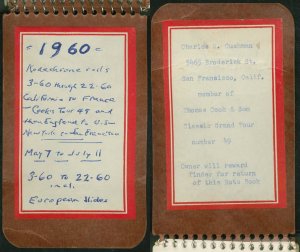 = 1960 =
Kodachrome rolls
3-60 through 22-60
California to France
Cooks Tour 49 and
then England to U.S.
New York to San Francisco
May 7 to July 11
3-60 to 22-60
incl.
European Slides
Charles W. Cushman
San Francisco, Calif.
member of
Thomas Cook & Son
Classic Grand Tour
number 49
Owner will reward
finder for return
of this Note Book